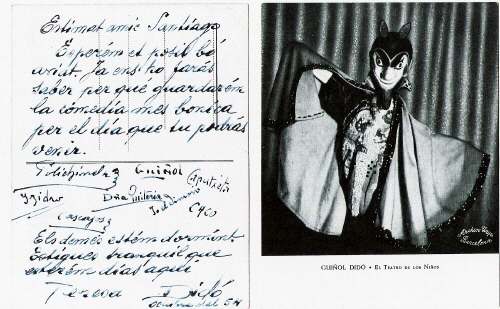 Estimat amic Santiago
Esperém et posis bó
aviat. Ja ens ho farás
saber per que guardarém
la comédia més bonica
per el dia que tu podrás
venir.
Putxinel·
GUIÑOL
Caputxeta
Yzidro
Dña Quiteria
Caco
Cascajos
Els demés están dormint.
Estigues tranquil que
estarém dias aquí
Teresa Didó
octubre del 54
Archivo
Barcelona
GUIÑOL DIDÓ • EL TEATRO DE LOS NIÑOS